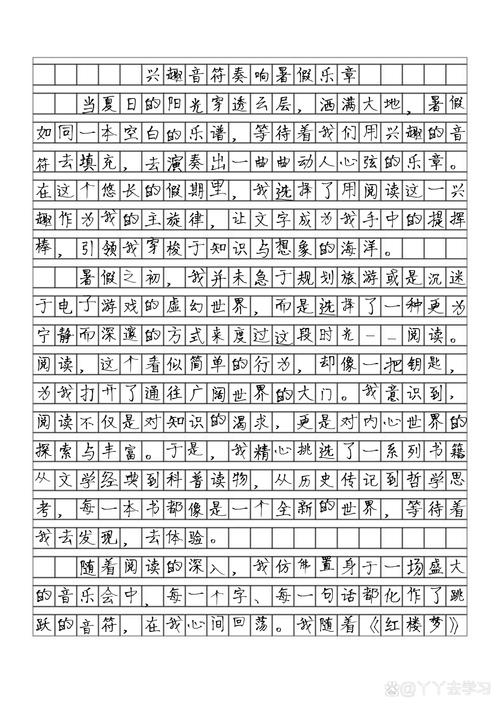 兴趣音符奏响暑假乐章
当夏日的阳光穿透云层，洒满大地，暑假
如同一本空白的乐谱，等待着我们用兴趣的音
符去填充，去演奏出一曲曲动人心弦的乐章。
在这个悠长的假期里，我选择了用阅读这一兴
趣作为我的主旋律，让文字成为我手中的提挥
棒，引领我穿梭于知识与想象的海洋。
暑假之初，我并未急于规划旅游或是沉迷
于电子游戏的虚幻世界，而是选择了一种更为
宁静而深邃的方式来度过这段时光——阅读。
阅读，这个看似简单的行为，却像一把钥匙，
为我打开了通往广阔世界的大门。我意识到，
阅读不仅是对知识的渴求，更是对内心世界的
探索与丰富。于是，我精心挑选了一系列书籍
从文学经典到科普读物，从历史传记到哲学思
考，每一本书都像是一个全新的世界，等待着
我去发现，去体验。
随着阅读的深入，我仿佛置身于一场盛大
的音乐会中，每一个字、每一句话都化作了跳
跃的音符，在我心间回荡。我随着《红楼梦》
@丫丫去学习